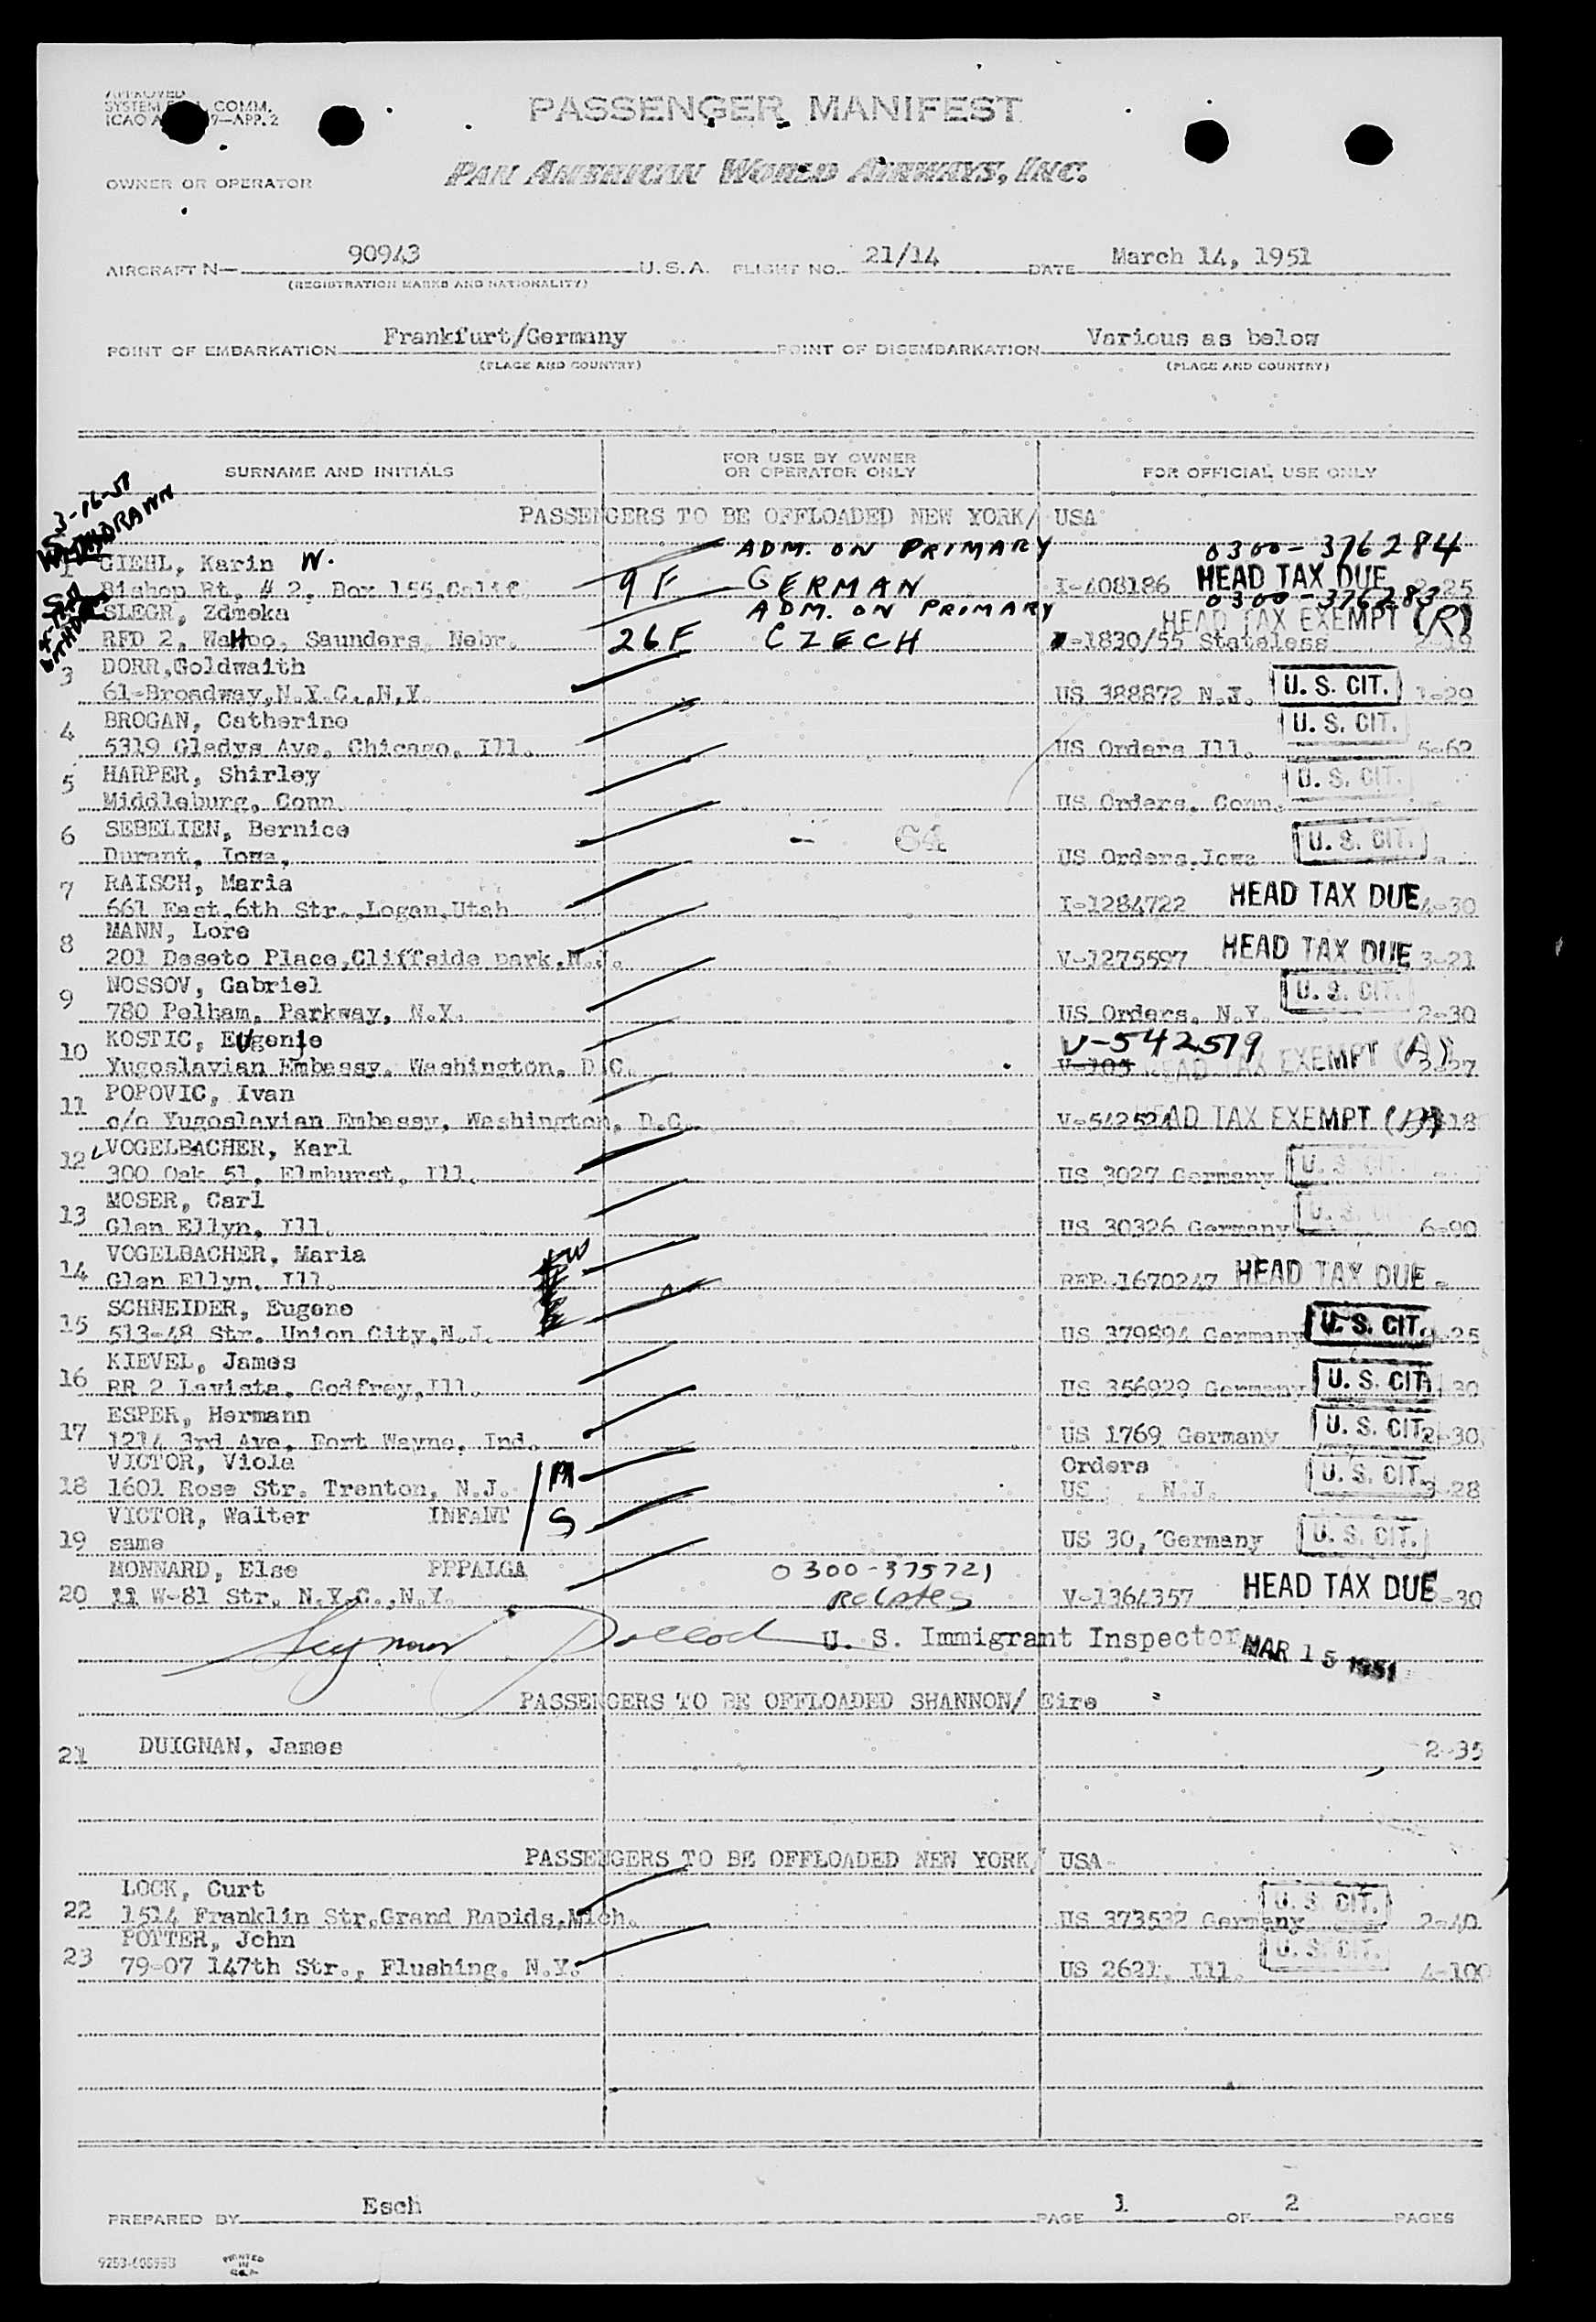 APPROVED
SYSTEM COMM.
ICAO A 9—APP. 2
PASSENGER MANIFEST
OWNER OR OPERATOR PAN AMERICAN WORLD AIRWAYS, INC.
AIRCRAFT N— 90943 U.S.A. FLIGHT NO. 21/14 DATE March 14, 1951
(REGISTRATION MARKS AND NATIONALITY)
POINT OF EMBARKATION Frankfurt/Germany POINT OF DISEMBARKATION Various as below
(PLACE AND COUNTRY) (PLACE AND COUNTRY)
SURNAME AND INITIALS FOR USE BY OWNER OR OPERATOR ONLY FOR OFFICIAL USE ONLY
3-16-51
WITHDRAWN
PASSENGERS TO BE OFFLOADED NEW YORK/ USA
1 GIEHL, Karin W. ADM. ON PRIMARY 0300-376284
Bishop Rt. # 2, Box 155, Calif. 9 F GERMAN I-408186 HEAD TAX DUE 2-25
SLEGR, Zdenka ADM. ON PRIMARY 0300-376283
RFD 2, WaHoo, Saunders, Nebr. 26 F CZECH -1830/55 Stateless HEAD TAX EXEMPT (R) 2-19
3 DORR,Goldwaith
61-Broadway,N.Y.C.,N.Y. US 388872 N.J. U. S. CIT. 1-29
4 BROGAN, Catherine
5319 Gladys Ave, Chicago, Ill. US Orders Ill. U. S. CIT. 5-62
5 HARPER, Shirley
Middleburg, Conn. US Orders, Conn. U. S. CIT.
6 SEBELIEN, Bernice - 64
Durant, Iowa, US Orders,Iowa U. S. CIT.
7 RAISCH, Maria
661 East,6th Str.,Logan,Utah I-1284722 HEAD TAX DUE 4-30
8 MANN, Lore
201 Deseto Place,Cliffside park,N.J. V-1275597 HEAD TAX DUE 3-21
9 NOSSOV, Gabriel
780 Pelham, Parkway, N.Y. US Orders, N.Y. U. S. CIT. 2-30
10 KOSTIC, Eugenje V-542519
Yugoslavian Embassy, Washington, D.C. HEAD TAX EXEMPT (A) 2-27
11 POPOVIC, Ivan
c/o Yugoslavian Embassy, Washington, D.C. V-542524 HEAD TAX EXEMPT 18
12 VOGELBACHER, Karl
300 Oak 51, Elmhurst, Ill. US 3027 Germany U. S. CIT.
13 MOSER, Carl
Glen Ellyn, Ill. US 30326 Germany U. S. CIT. 6-90
14 VOGELBACHER, Maria
Glen Ellyn, Ill. REP 1670247 HEAD TAX DUE -
15 SCHNEIDER, Eugene
513-48 Str. Union City,N.J. US 379894 Germany U. S. CIT. -25
16 KIEVEL, James
RR 2 Lavista, Godfrey,Ill. US 356929 Germany U. S. CIT. 30
17 ESPER, Hermann
1214 3rd Ave, Fort Wayne, Ind. US 1769 Germany U. S. CIT. 2-30
VICTOR, Viola Orders
18 1601 Rose Str. Trenton, N.J. M US , N.J. U. S. CIT. 3-28
VICTOR, Walter INFANT S
19 same US 30, Germany U. S. CIT.
MONNARD, Else PPPALGA 0300-375721
20 11 W-81 Str. N.Y.C.,N.Y. Relates V-1364357 HEAD TAX DUE -30
Seymour Pollock U. S. Immigrant Inspector MAR 15 1951
PASSENGERS TO BE OFFLOADED SHANNON/ Eire
21 DUIGNAN, James 2-35
PASSENGERS TO BE OFFLOADED NEW YORK/ USA
LOCK, Curt
22 1514 Franklin Str.Grand Rapids,Mich. US 373532 Germany U. S. CIT. 2-40
POTTER, John
23 79-07 147th Str., Flushing, N.Y. US 2621, Ill. U. S. CIT. 4-100
PREPARED BY Esch PAGE 1 OF 2 PAGES
PRINTED IN U.S.A.